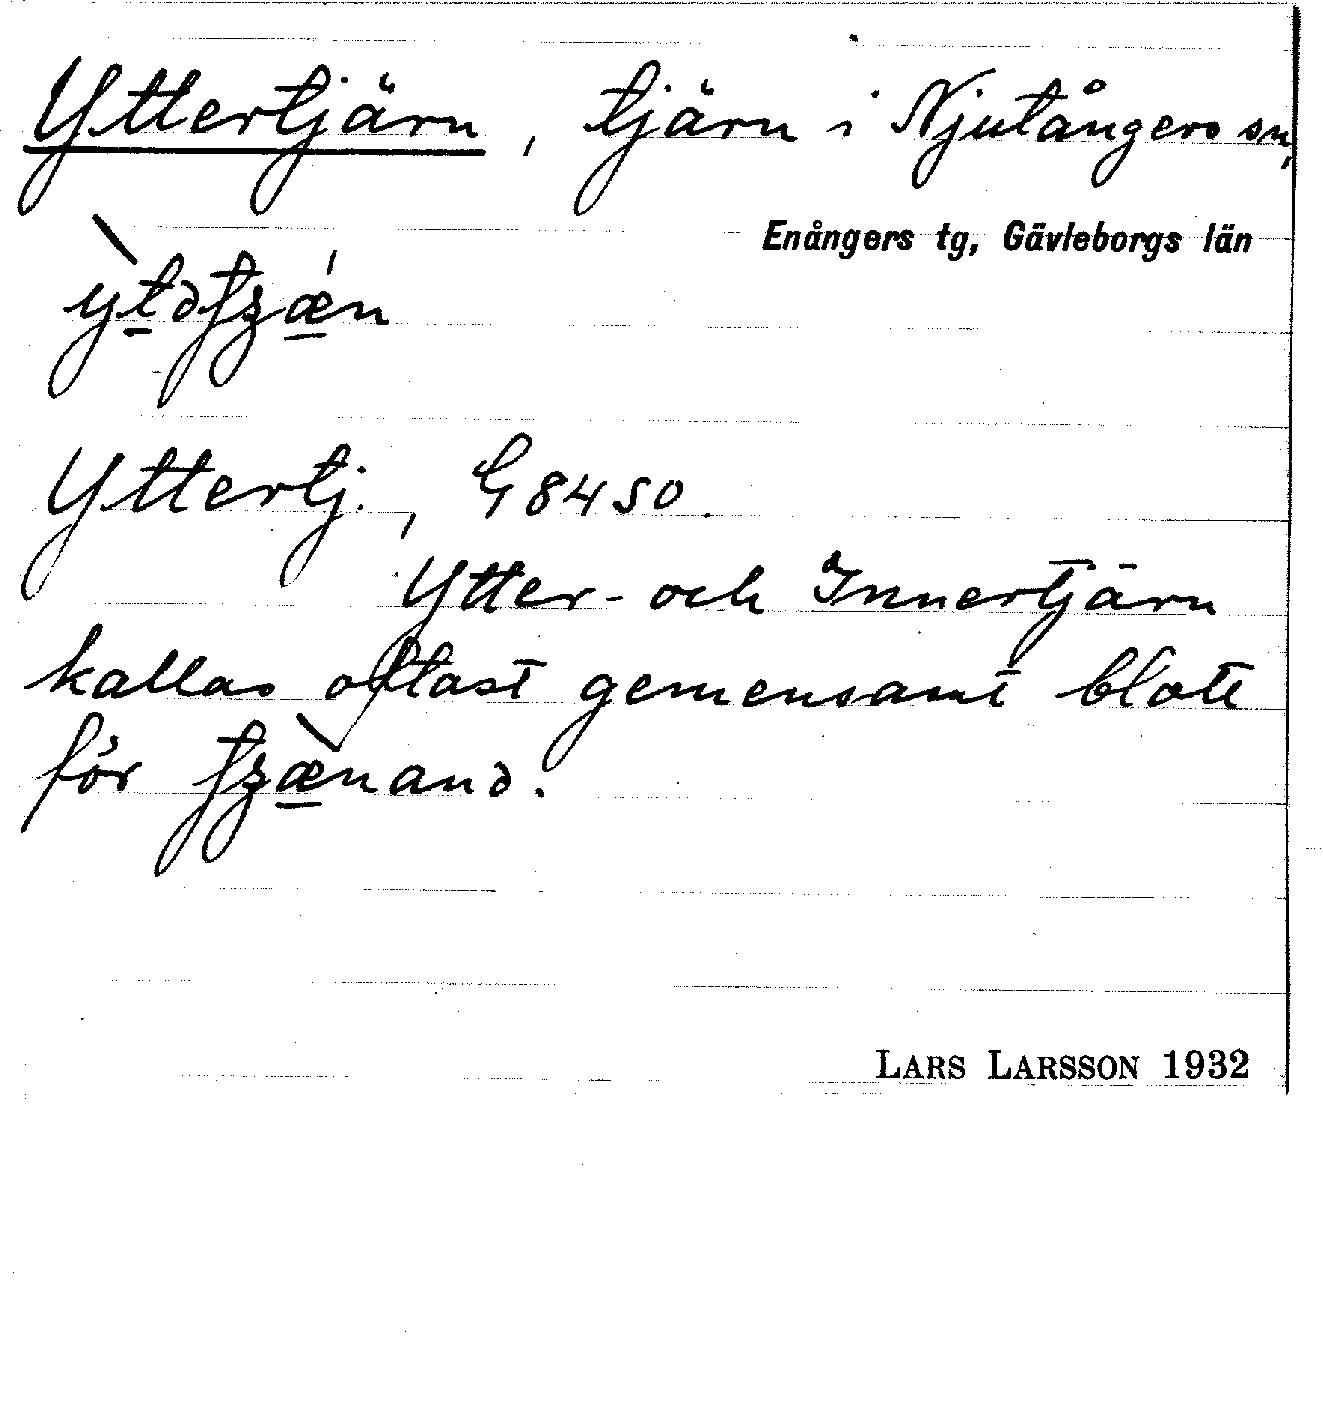 Yttertjärn, tjärn i Njutångers sn,
Enångers tg, Gävleborgs län
Yttertj., G 84 SO.
Ytter- och Innertjärn
kallas oftast gemensamt blott
för
LARS LARSSON 1932